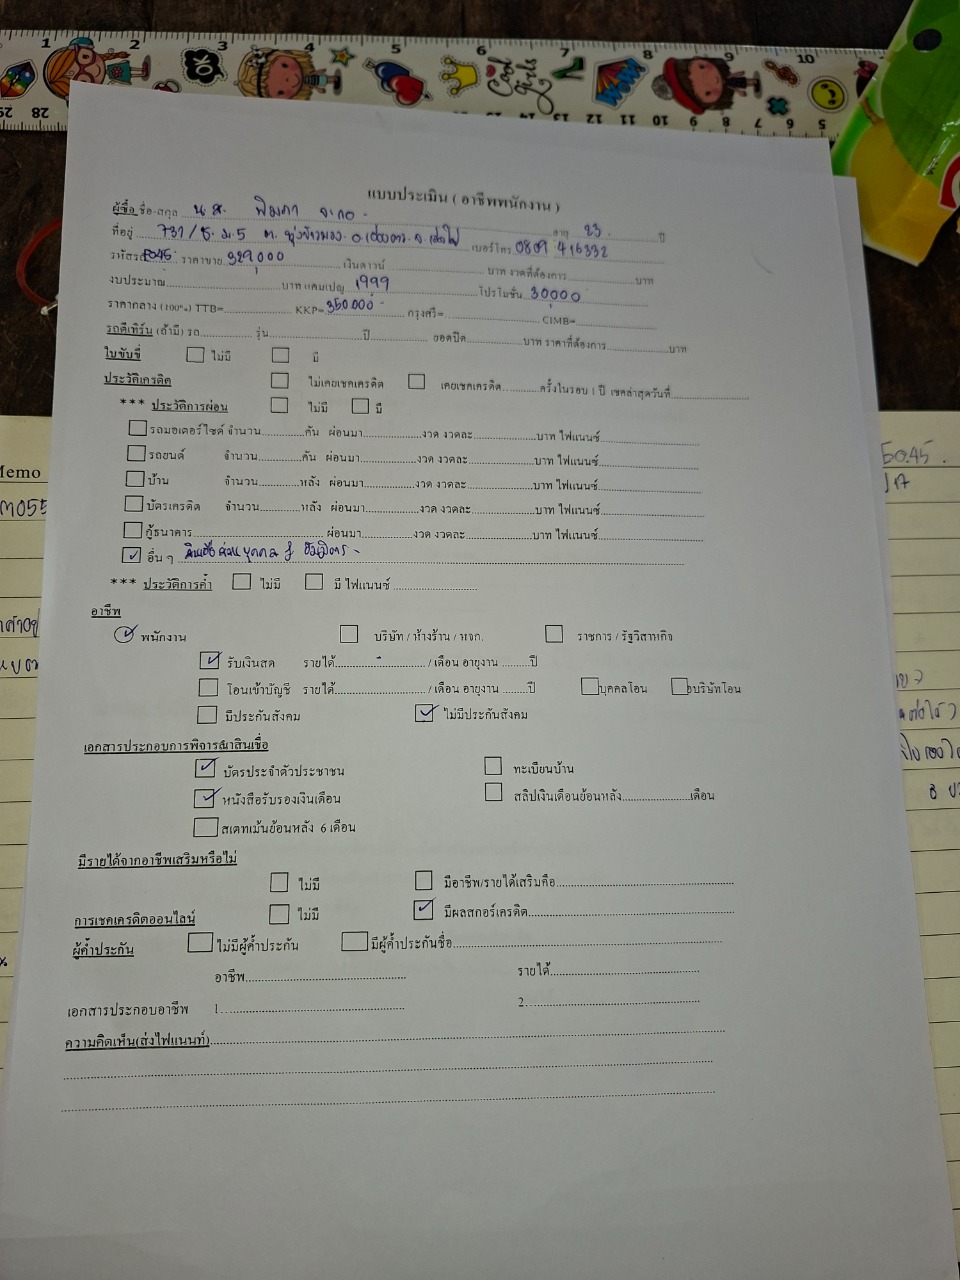 1 2 3 4 5 6 7 8 9 10
OK
Cool girls
Wow
29 28 14 13 12 11 10 9 8 7 6 5
แบบประเมิน ( อาชีพพนักงาน )
ผู้ซื้อ ชื่อ-สกุล น.ส. อายุ 23 ปี
ที่อยู่ 731/ ม.5 ต. เบอร์โทร 0809 416332
รหัสรถ 5045 ราคาขาย 329,000 เงินดาวน์ บาท งวดที่ต้องการ บาท
งบประมาณ บาท แคมเปญ 1999 โปรโมชั่น 30,000
ราคากลาง (100%) TTB= KKP= 350,000 กรุงศรี= CIMB=
รถตีเทิร์น (ถ้ามี) รถ รุ่น ปี ยอดปิด บาท ราคาที่ต้องการ บาท
ใบขับขี่ ไม่มี มี
ประวัติเครดิต ไม่เคยเชคเครดิต เคยเชคเครดิต ครั้งในรอบ 1 ปี เชคล่าสุดวันที่
*** ประวัติการผ่อน ไม่มี มี
รถมอเตอร์ไซค์ จำนวน คัน ผ่อนมา งวด งวดละ บาท ไฟแนนซ์
รถยนต์ จำนวน คัน ผ่อนมา งวด งวดละ บาท ไฟแนนซ์
บ้าน จำนวน หลัง ผ่อนมา งวด งวดละ บาท ไฟแนนซ์
บัตรเครดิต จำนวน หลัง ผ่อนมา งวด งวดละ บาท ไฟแนนซ์
กู้ธนาคาร ผ่อนมา งวด งวดละ บาท ไฟแนนซ์
อื่น ๆ สินเชื่อส่วนบุคคล
*** ประวัติการค้ำ ไม่มี มี ไฟแนนซ์
อาชีพ
พนักงาน บริษัท / ห้างร้าน / หจก. ราชการ / รัฐวิสาหกิจ
รับเงินสด รายได้ / เดือน อายุงาน ปี
โอนเข้าบัญชี รายได้ / เดือน อายุงาน ปี บุคคลโอน บริษัทโอน
มีประกันสังคม ไม่มีประกันสังคม
เอกสารประกอบการพิจารณาสินเชื่อ
บัตรประจำตัวประชาชน ทะเบียนบ้าน
หนังสือรับรองเงินเดือน สลิปเงินเดือนย้อนหลัง เดือน
สเตทเม้นย้อนหลัง 6 เดือน
มีรายได้จากอาชีพเสริมหรือไม่
ไม่มี มีอาชีพ/รายได้เสริมคือ
การเชคเครดิตออนไลน์ ไม่มี มีผลสกอร์เครดิต
ผู้ค้ำประกัน ไม่มีผู้ค้ำประกัน มีผู้ค้ำประกันชื่อ
อาชีพ รายได้
เอกสารประกอบอาชีพ 1. 2.
ความคิดเห็น(ส่งไฟแนนท์)
Memo
5045